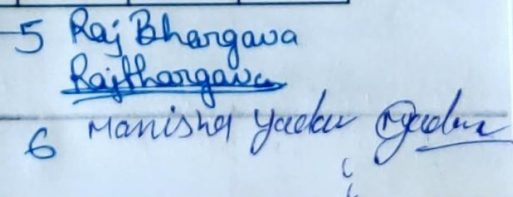 5 Raj Bhargava
RajBhargava
6 Manisha Yadav Myadav